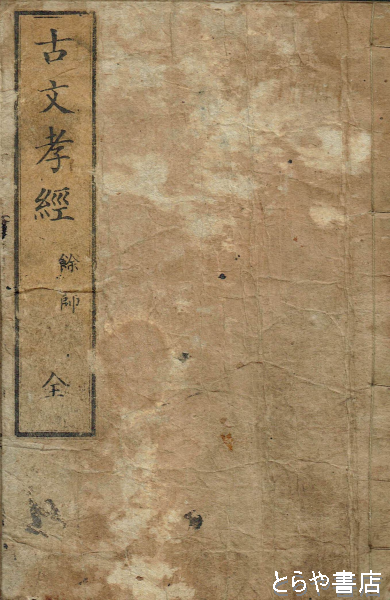 古文孝經
餘師
全
とらや書店